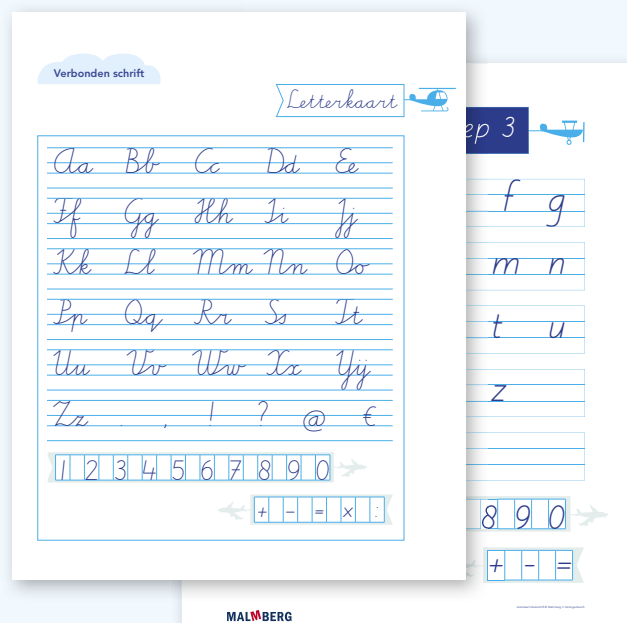 Verbonden schrift
Letterkaart
Aa Bb Cc Dd Ee
Ff Gg Hh Ii Jj
Kk Ll Mm Nn Oo
Pp Qq Rr Ss Tt
Uu Vv Ww Xx IJij
Zz . , ! ? @ €
1 2 3 4 5 6 7 8 9 0
+ - = x :
ep 3
f g
m n
t u
z
8 9 0
+ - =
MALMBERG